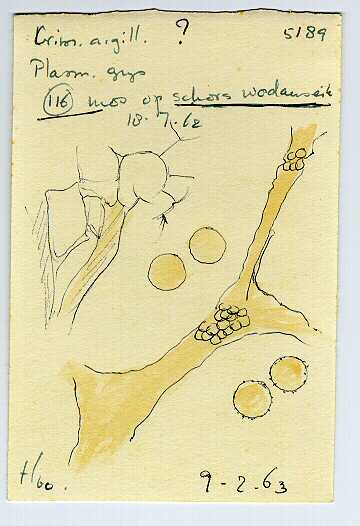 Cribr. argill. ? 5189
Plasm. grys
(116) mos op schors wodanseik
18-7-62
H/60.
9-2-63